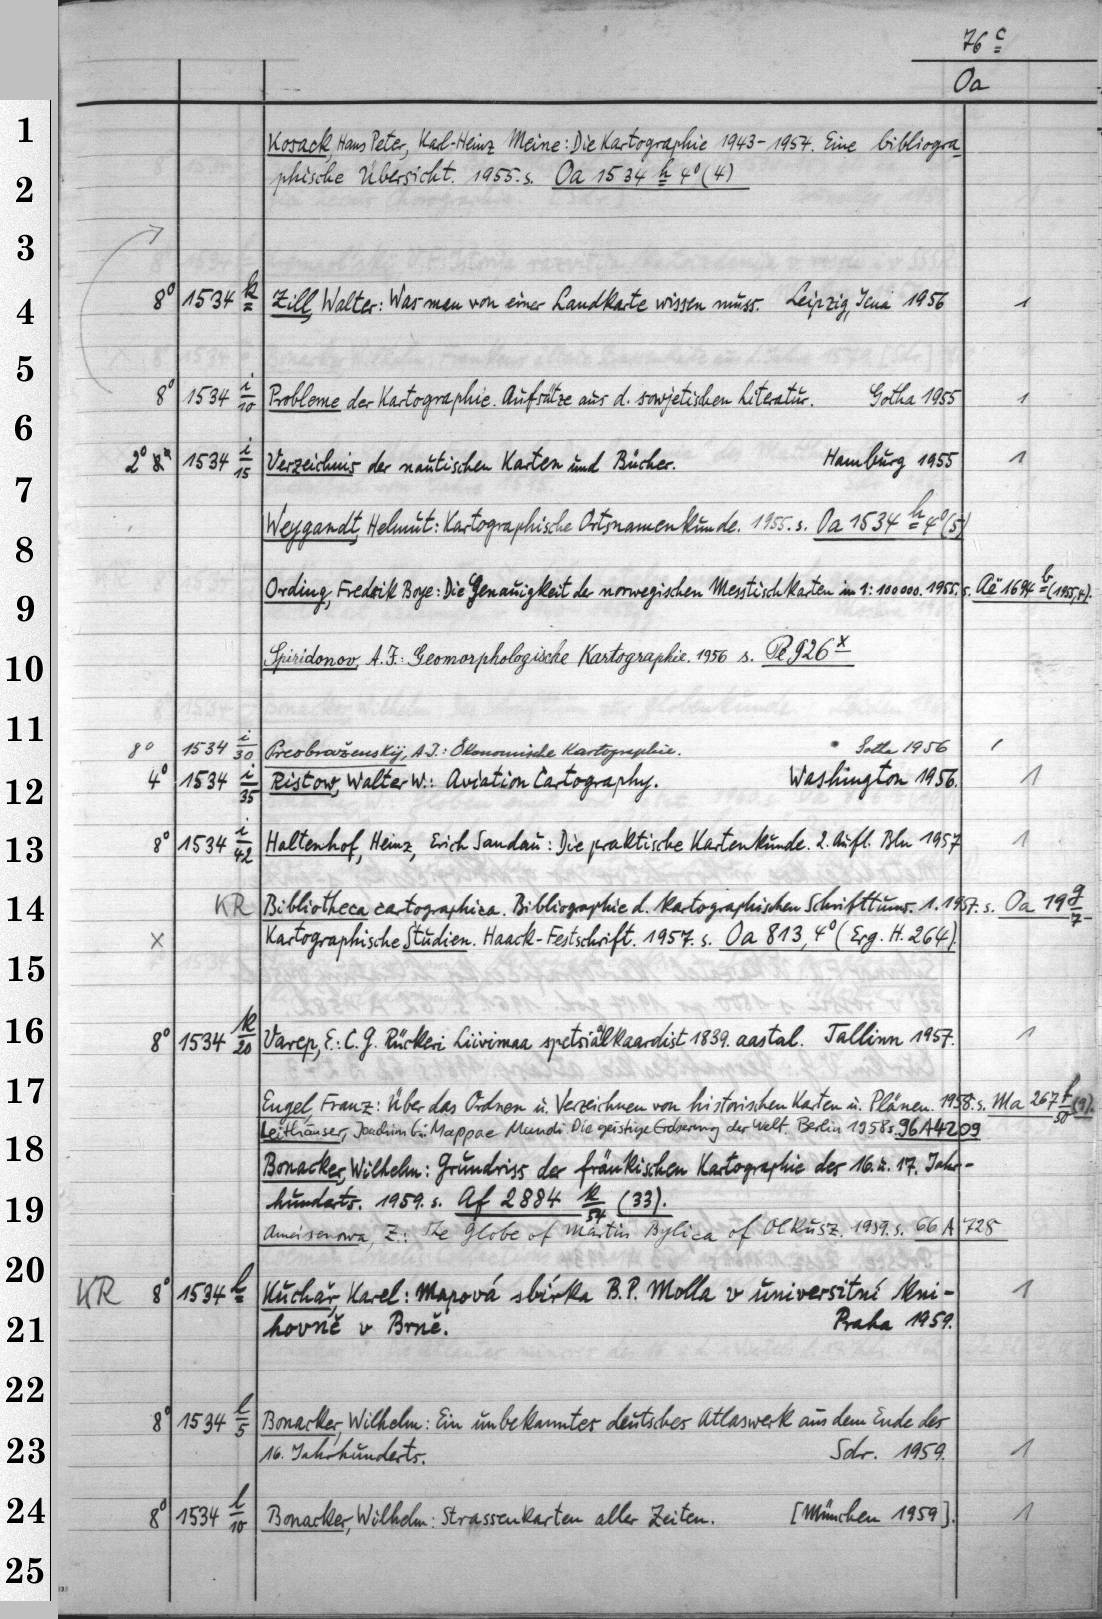 76 c
Oa
1
Kosack, Hans Peter, Karl-Heinz Meine: Die Kartographie 1943-1954. Eine bibliogra-
2
phische Übersicht. 1955. s. Oa 1534 h 4° (4)
3
4
8° 1534 k Zill, Walter: Was man von einer Landkarte wissen muss. Leipzig, Jena 1956 1
5
8° 1534 i/10 Probleme der Kartographie. Aufsätze aus d. sowjetischen Literatur. Gotha 1955 1
6
2° 1534 i/15 Verzeichnis der nautischen Karten und Bücher. Hamburg 1955 1
7
Weygandt, Helmut: Kartographische Ortsnamenkunde. 1955. s. Oa 1534 h 4° (5)
8
Ording, Fredrik Boye: Die Genauigkeit der norwegischen Messtischkarten im 1:100000. 1955. s. Aë 1694 b (1955,4).
9
10
Spiridonov, A.I.: Geomorphologische Kartographie. 1956 s. Pe 926 x
11
8° 1534 i/30 Preobraženskij, A.I.: Ökonomische Kartographie. Gotha 1956 1
12
4° 1534 i/35 Ristow, Walter W.: Aviation Cartography. Washington 1956. 1
13
8° 1534 i/42 Haltenhof, Heinz, Erich Sandau: Die praktische Kartenkunde. 2. Aufl. Bln 1957 1
14
KR Bibliotheca cartographica. Bibliographie d. kartographischen Schrifttums. 1. 1957. s. Oa 19 g/7
X Kartographische Studien. Haack-Festschrift. 1957. s. Oa 813, 4° (Erg. H. 264).
15
16
8° 1534 k/20 Varep, E.: C. G. Rückeri Liivimaa spetsiaalkaardist 1839. aastal. Tallinn 1957. 1
17
Engel, Franz: Über das Ordnen u. Verzeichnen von historischen Karten u. Plänen. 1958. s. Ma 267 f/50 (9).
Leithäuser, Joachim G.: Mappae Mundi. Die geistige Eroberung der Welt. Berlin 1958 s. 96 A 4209
18
Bonacker, Wilhelm: Grundriss der fränkischen Kartographie des 16. u. 17. Jahr-
19
hunderts. 1959. s. Af 2884 k/54 (33).
Ameisenowa, Z.: The Globe of Martin Bylica of Olkusz. 1959. s. 66 A 728
20
KR 8° 1534 l Kuchař, Karel: Mapová sbírka B. P. Molla v universitní kni-
21
hovně v Brně. Praha 1959. 1
22
8° 1534 l/5 Bonacker, Wilhelm: Ein unbekanntes deutsches Atlaswerk aus dem Ende des
23
16. Jahrhunderts. Sdr. 1959. 1
24
8° 1534 l/10 Bonacker, Wilhelm: Strassenkarten aller Zeiten. [München 1959]. 1
25